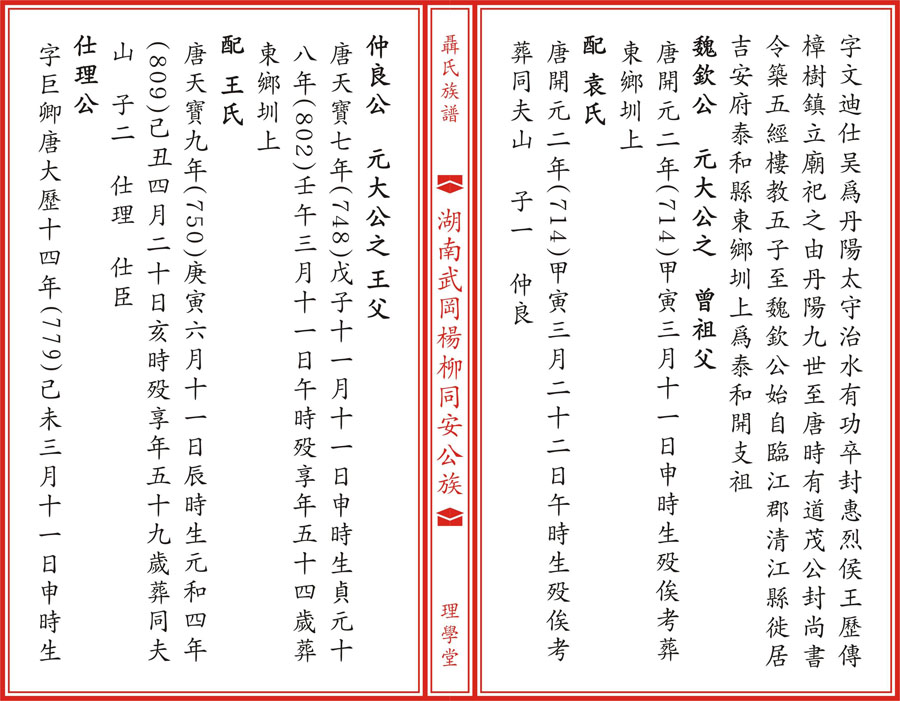 字文迪仕吴爲丹陽太守治水有功卒封惠烈侯王歷傳
樟樹鎮立廟祀之由丹陽九世至唐時有道茂公封尚書
令築五經樓教五子至魏欽公始自臨江郡清江縣徙居
吉安府泰和縣東鄉圳上爲泰和開支祖
魏欽公 元大公之 曾祖父
唐開元二年(714)甲寅三月十一日申時生殁俟考葬
東鄉圳上
配 袁氏
唐開元二年(714)甲寅三月二十二日午時生殁俟考
葬同夫山 子一 仲良
聶氏族譜
湖南武岡楊柳同安公族
理學堂
仲良公 元大公之 王父
唐天寶七年(748)戊子十一月十一日申時生貞元十
八年(802)壬午三月十一日午時殁享年五十四歲葬
東鄉圳上
配 王氏
唐天寶九年(750)庚寅六月十一日辰時生元和四年
(809)己丑四月二十日亥時殁享年五十九歲葬同夫
山 子二 仕理 仕臣
仕理公
字巨卿唐大歷十四年(779)己未三月十一日申時生